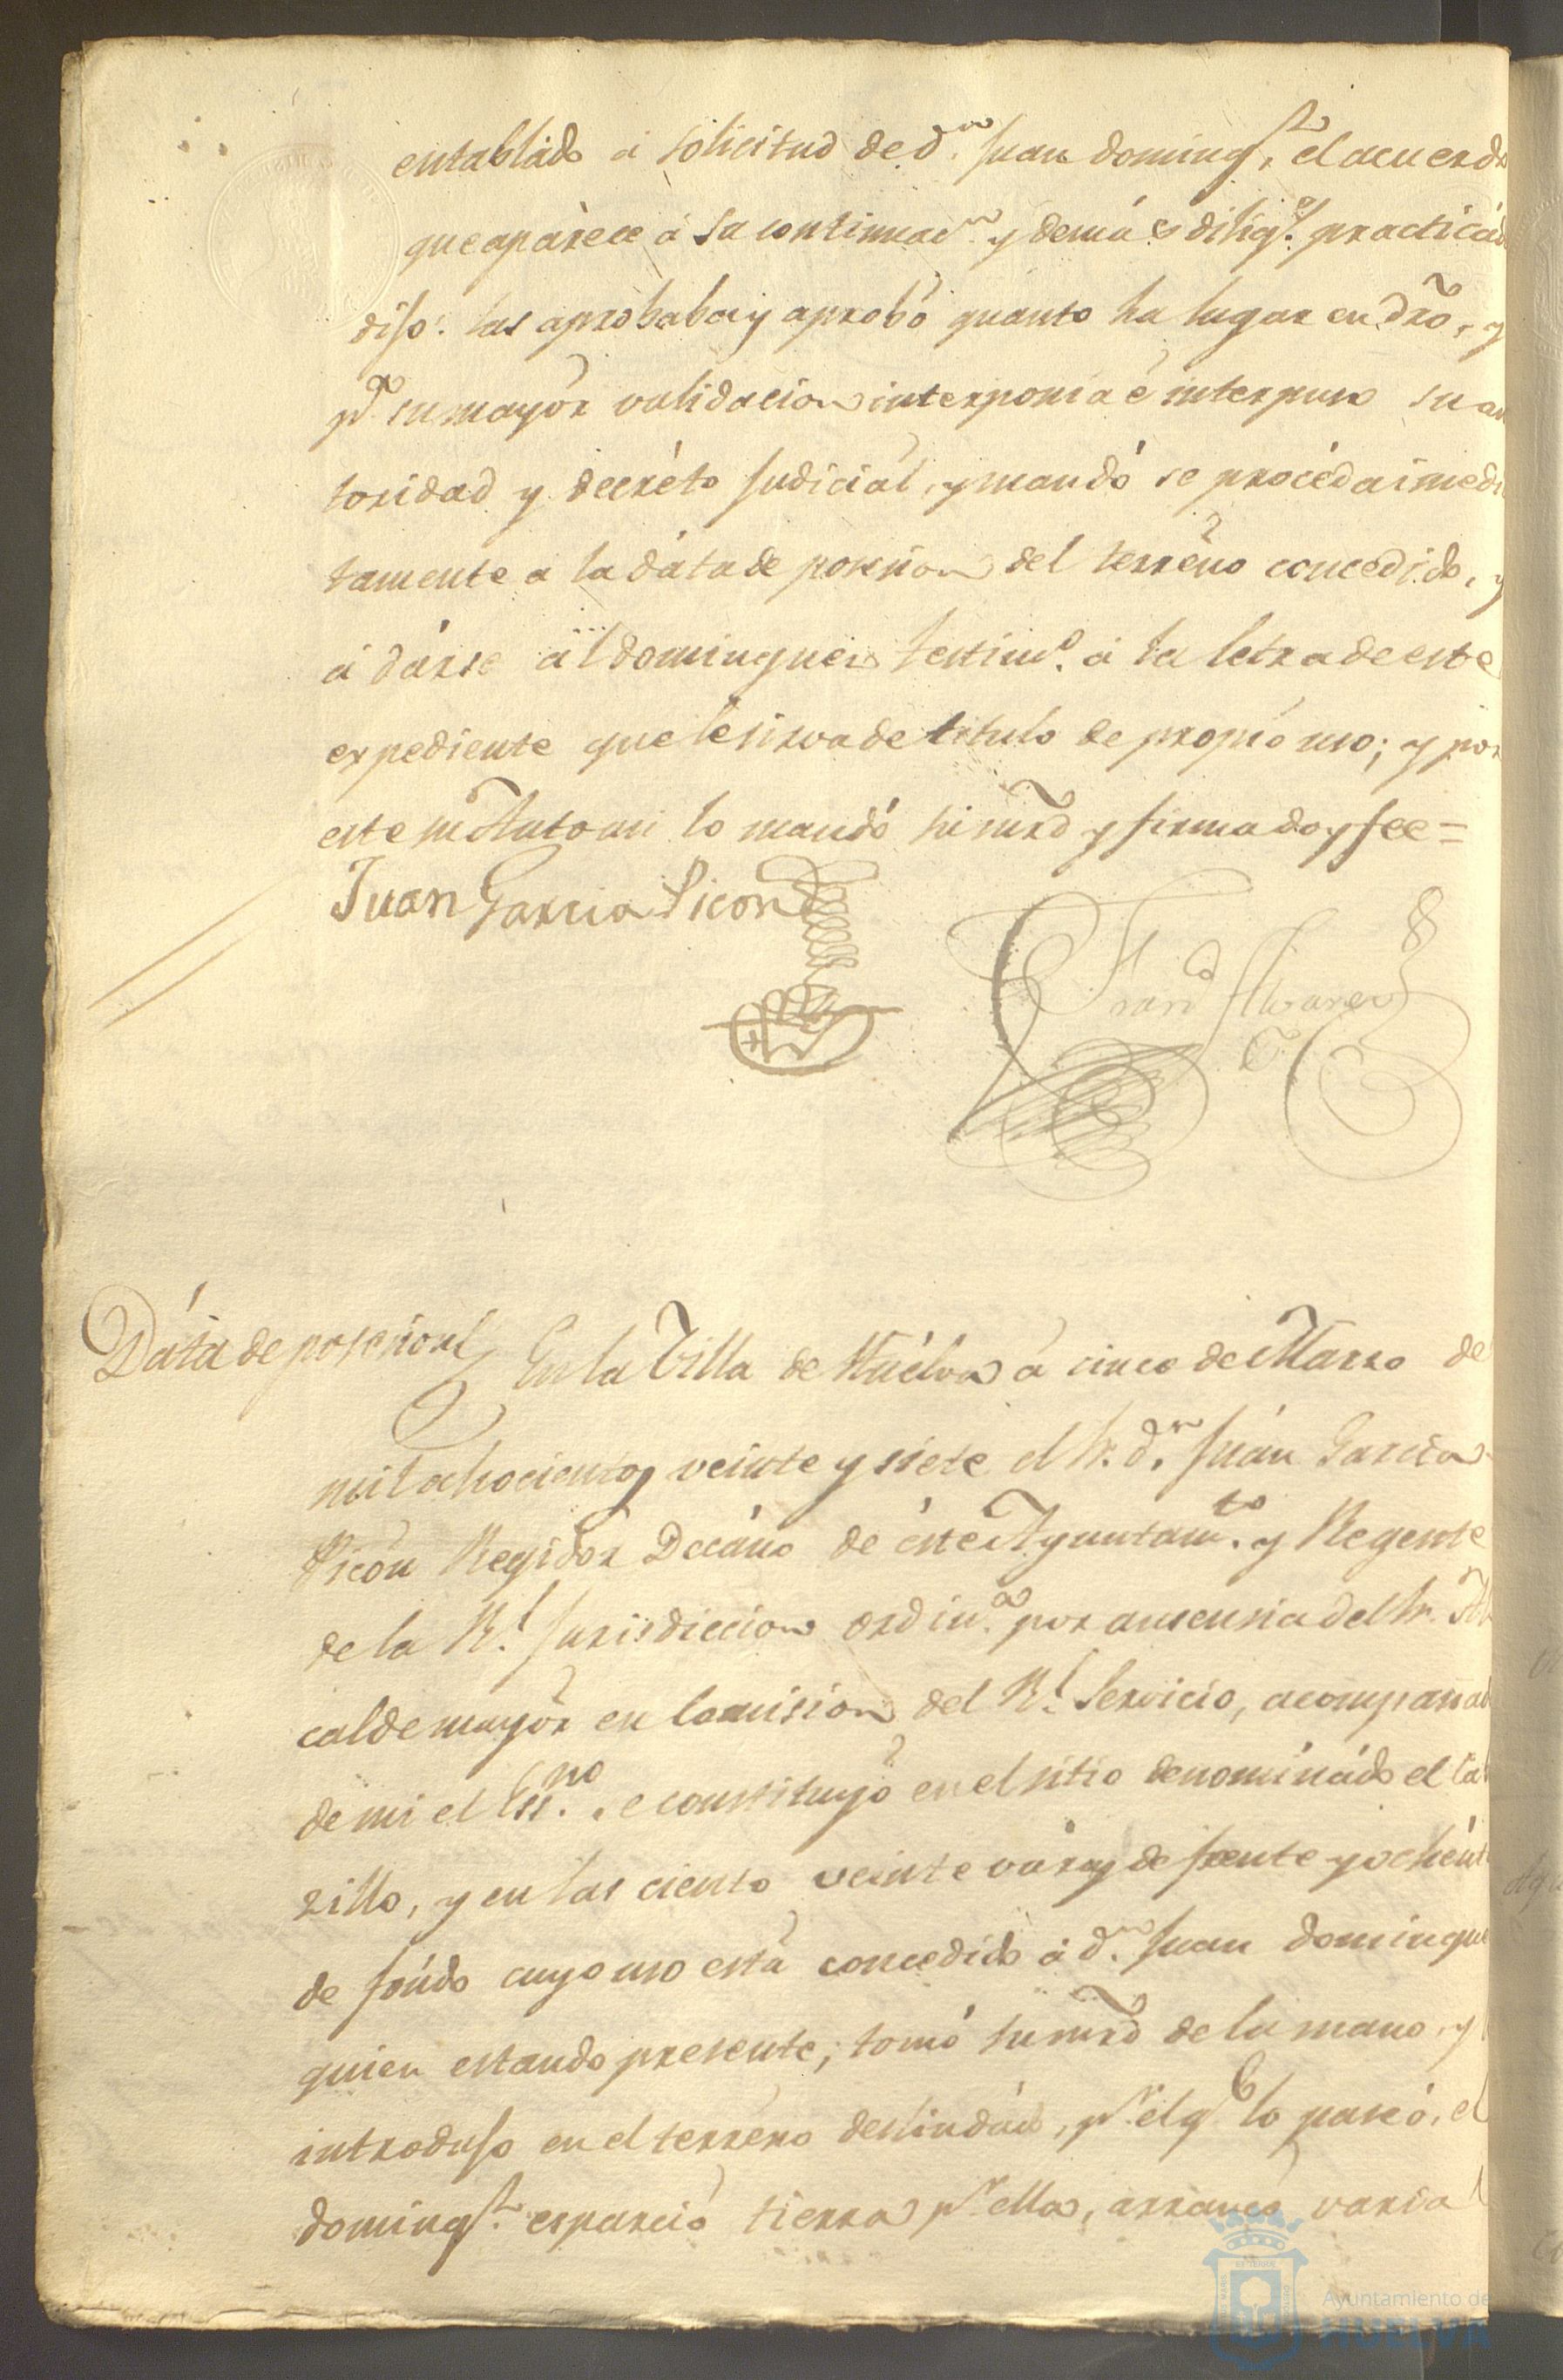 entablado a solicitud de d.n Juan doming.z el acuerdo
que aparece á su continuac.n y demás dilig.s practicad
dijo: las aprobaba y aprobó quanto ha lugar en dro, y
p.a su mayor validacion interponia é interpuso su au
toridad y decreto judicial, y mandó se proceda imedia
tamente a la dáta de posesion del terreno concedido, y
á dárse al dominguez testim.o á la letra de este
expediente que le sirva de titulo de propio uso; y por
este su Auto asi lo mandó su mrd y firma doy fee =
Juan Garcia Picon
Fran.co Alvarez
Dáta de posesion
En la Villa de Huélva á cinco de Marzo de
mil ochocientos veinte y siete el Sr. d.n Juan Garcia
Picón Regidor Decáno de este Ayuntam.to y Regente
de la R.l Jurisdiccion ordin.a por ausensia del Sr. Al
calde mayor en Comision del R.l Servicio, acompañad
de mi el Ess.no se constituyó en el sitio denominádo el Ca
zillo, y en las ciento veinte varas de frente y ochént
de fóndo cuyo uso está concedido á d.n Juan domingue
quien estando presente; tomó su mrd de la mano, y
introdujo en el terreno deslindádo, p.r el q.e lo paseó, el
doming.z esparció tierra p.r ella, arrancó varia
Ayuntamiento de
HUELVA